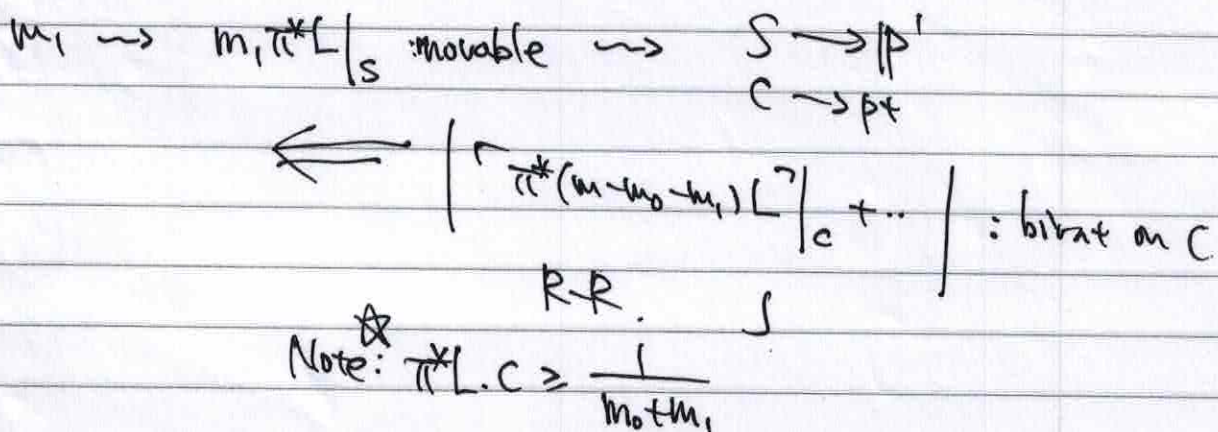 m₁ ⇝ m₁π*L|_S :movable ⇝ S → ℙ¹
C → pt
⇐ |⌜π*(m-m₀-m₁)L⌝|_C + ..| : birat on C
R-R.
☆
Note: π*L.C ≥ 1/(m₀+m₁)